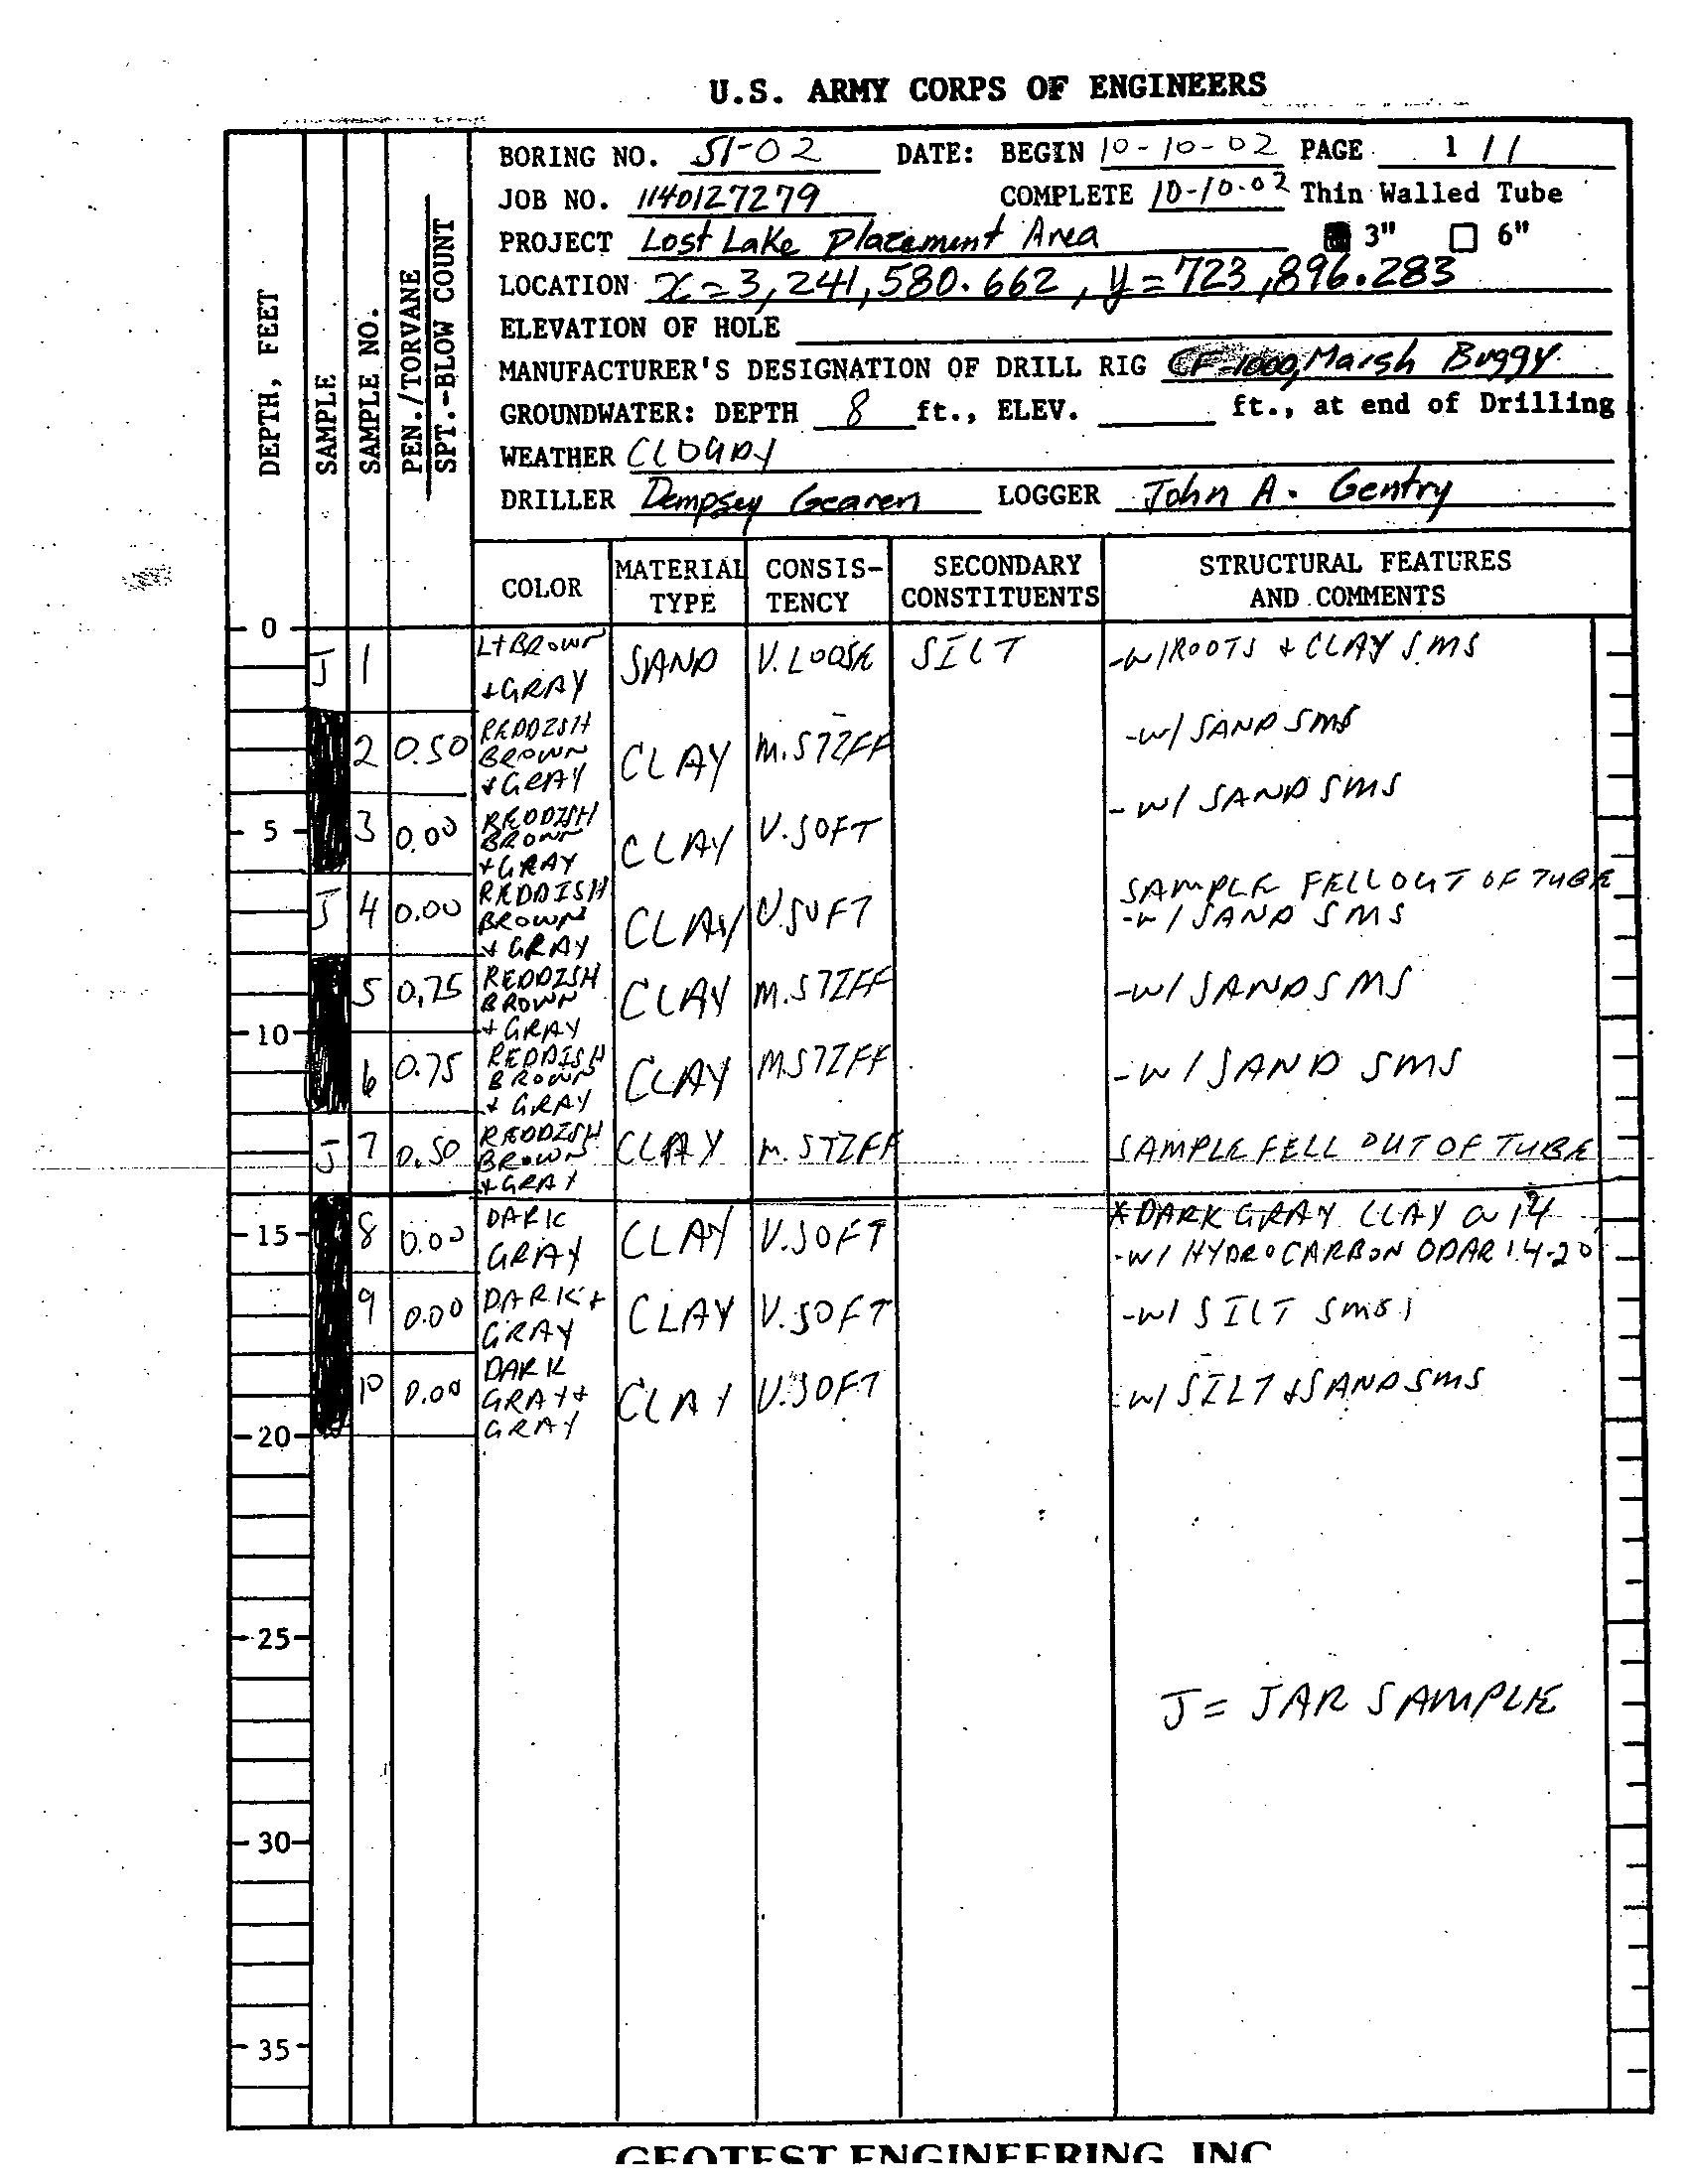 U.S. ARMY CORPS OF ENGINEERS
BORING NO. 51-02 DATE: BEGIN 10-10-02 PAGE 1 / 1
JOB NO. 1140127279 COMPLETE 10-10-02 Thin Walled Tube
PROJECT Lost Lake Placement Area 3" 6"
LOCATION x=3,241,580.662, y=723,896.283
ELEVATION OF HOLE
MANUFACTURER'S DESIGNATION OF DRILL RIG CF-1000, Marsh Buggy
GROUNDWATER: DEPTH 8 ft., ELEV. ft., at end of Drilling
WEATHER CLOUDY
DRILLER Dempsey Gearen LOGGER John A. Gentry
DEPTH, FEET
SAMPLE
SAMPLE NO.
PEN./TORVANE
SPT.-BLOW COUNT
COLOR MATERIAL TYPE CONSIS-TENCY SECONDARY CONSTITUENTS STRUCTURAL FEATURES AND COMMENTS
0
J 1 LT BROWN +GRAY SAND V. LOOSE SILT -W/ROOTS + CLAY SMS
2 0.50 REDDISH BROWN +GRAY CLAY M. STIFF -W/ SAND SMS
5
3 0.00 REDDISH BROWN +GRAY CLAY V. SOFT -W/ SAND SMS
J 4 0.00 REDDISH BROWN + GRAY CLAY V. SOFT SAMPLE FELL OUT OF TUBE
-W/ SAND SMS
5 0.75 REDDISH BROWN + GRAY CLAY M. STIFF -W/ SAND SMS
10
6 0.75 REDDISH BROWN + GRAY CLAY M STIFF -W/ SAND SMS
J 7 0.50 REDDISH BROWN +GRAY CLAY M. STIFF SAMPLE FELL OUT OF TUBE
15
8 0.00 DARK GRAY CLAY V. SOFT *DARK GRAY CLAY @ 14'
-W/ HYDROCARBON ODAR 14-20'
9 0.00 DARK + GRAY CLAY V. SOFT -W/ SILT SMS
10 0.00 DARK GRAY + GRAY CLAY V. SOFT -W/ SILT + SAND SMS
20
25
J = JAR SAMPLE
30
35
GEOTEST ENGINEERING, INC